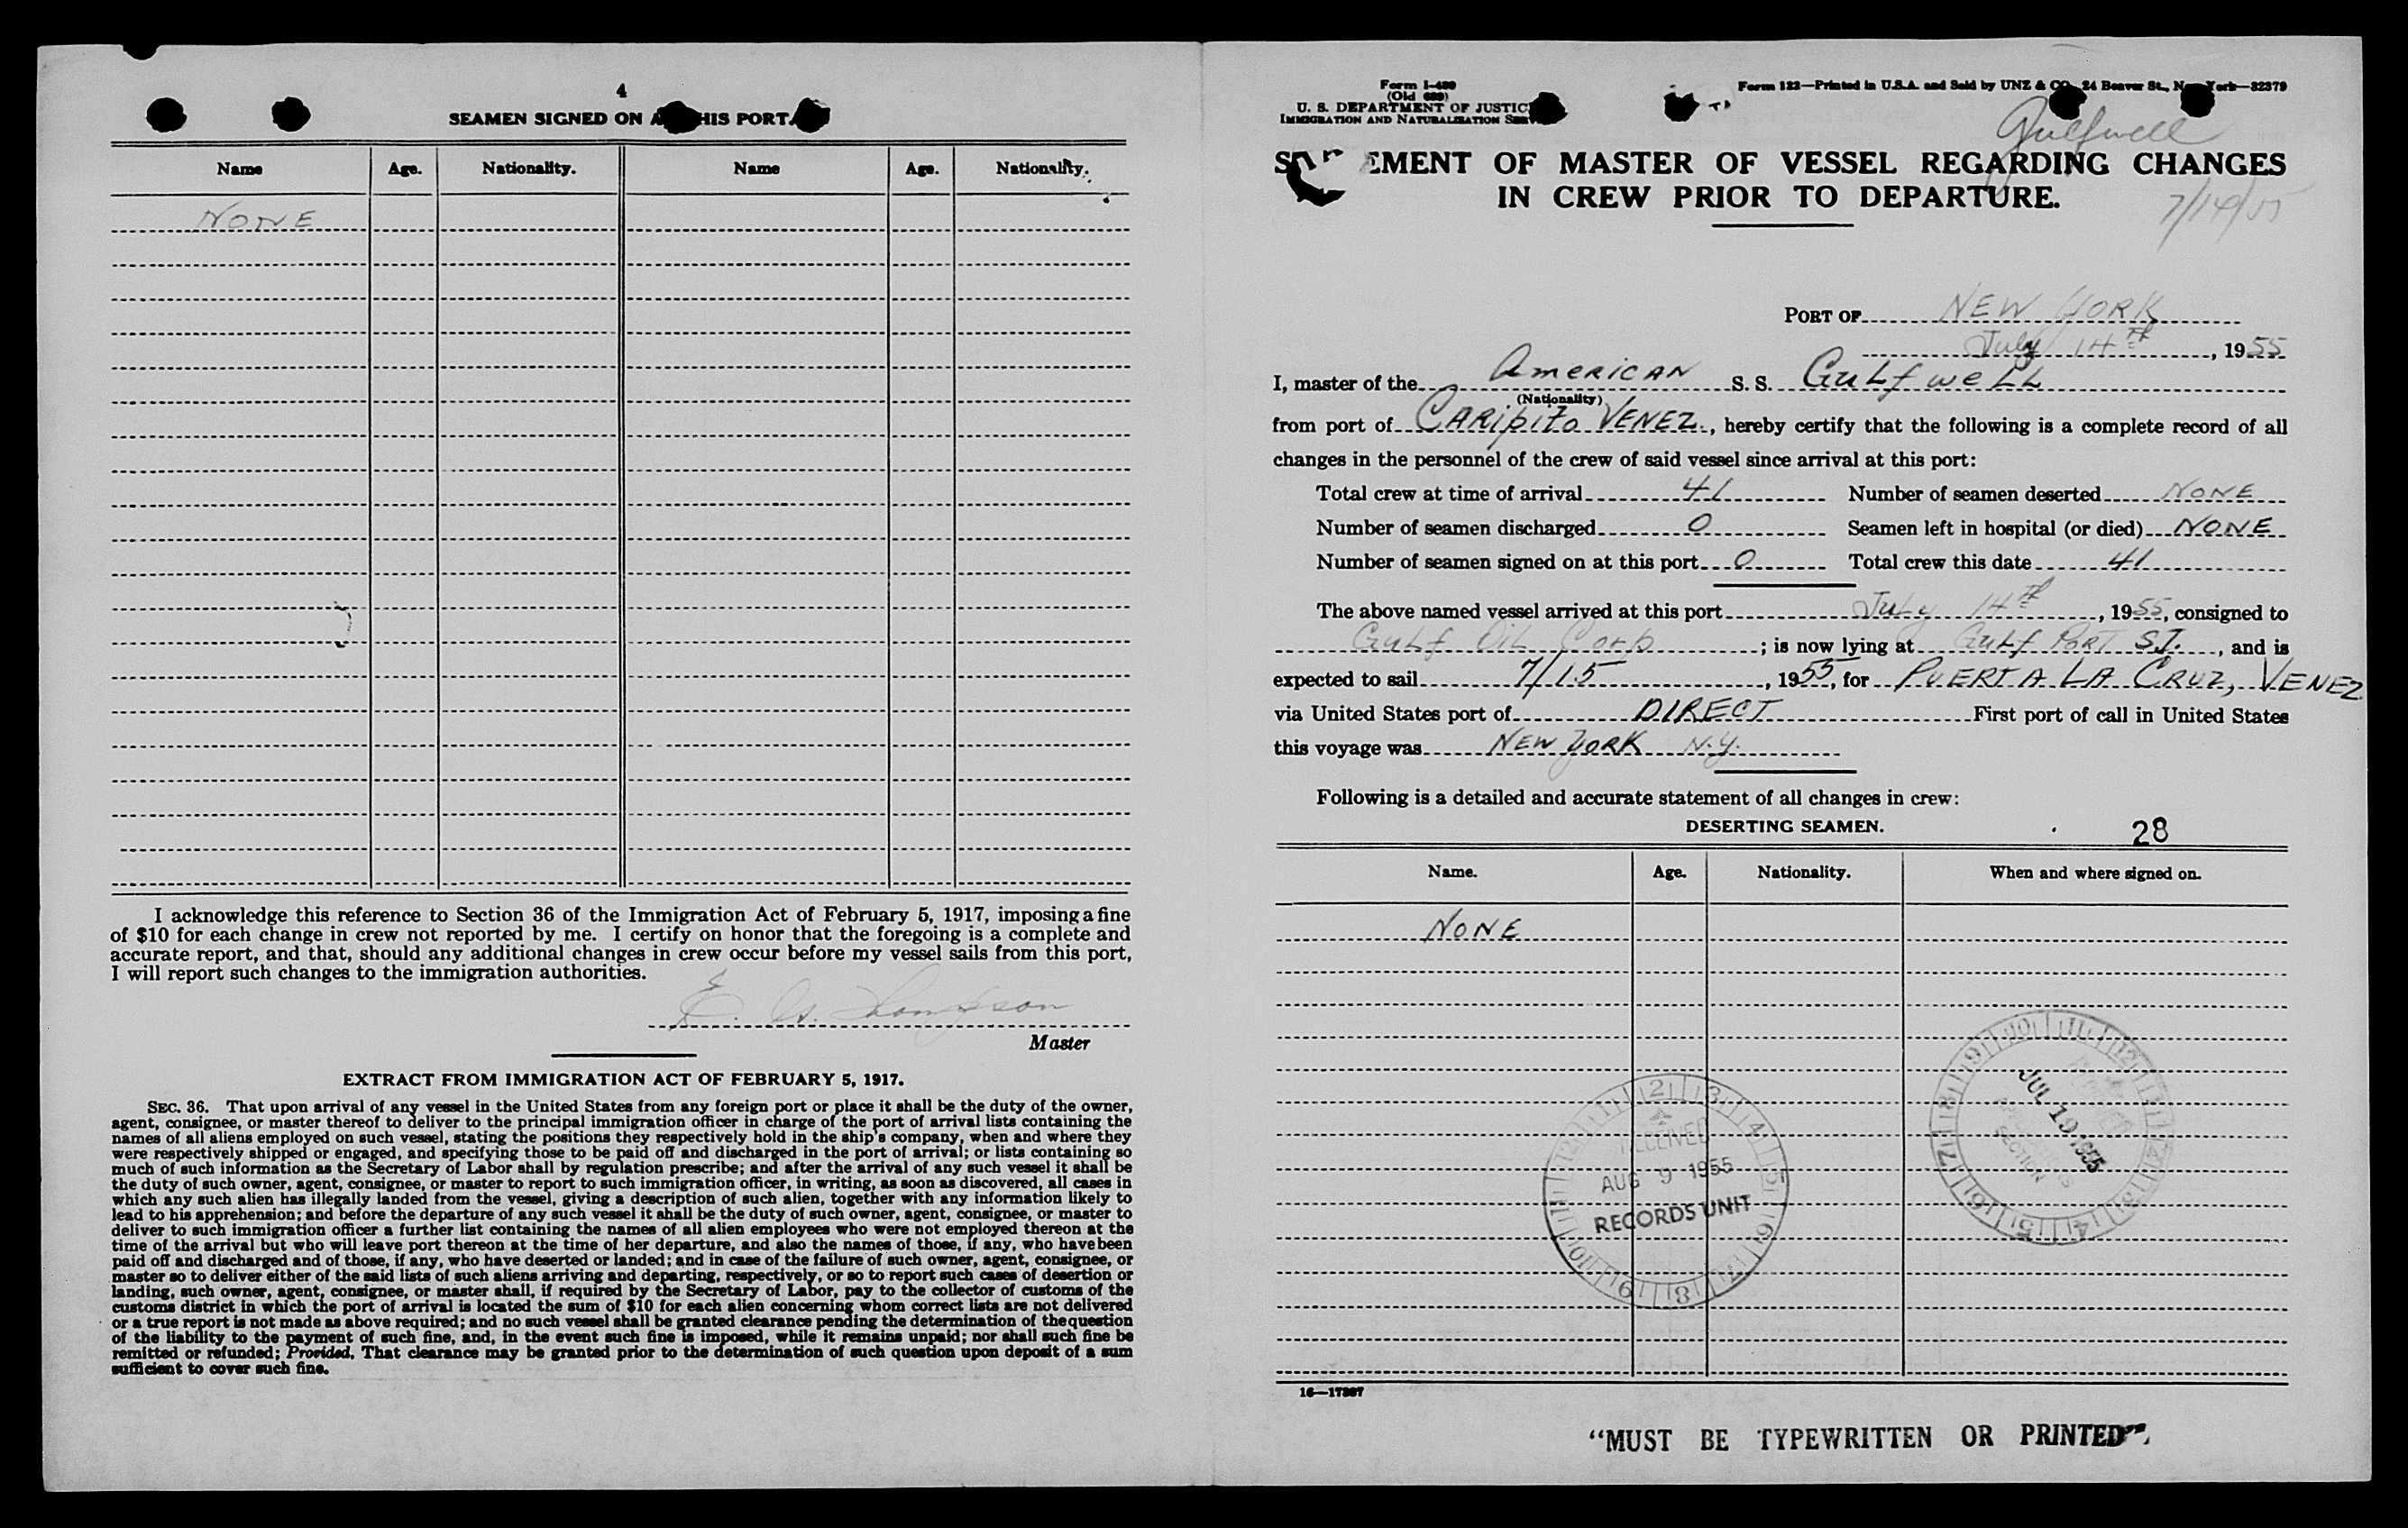 4
SEAMEN SIGNED ON HIS PORT.
Name Age. Nationality. Name Age. Nationality.
NONE
I acknowledge this reference to Section 36 of the Immigration Act of February 5, 1917, imposing a fine
of $10 for each change in crew not reported by me. I certify on honor that the foregoing is a complete and
accurate report, and that, should any additional changes in crew occur before my vessel sails from this port,
I will report such changes to the immigration authorities.
E. Thompson
Master
EXTRACT FROM IMMIGRATION ACT OF FEBRUARY 5, 1917.
SEC. 36. That upon arrival of any vessel in the United States from any foreign port or place it shall be the duty of the owner,
agent, consignee, or master thereof to deliver to the principal immigration officer in charge of the port of arrival lists containing the
names of all aliens employed on such vessel, stating the positions they respectively hold in the ship's company, when and where they
were respectively shipped or engaged, and specifying those to be paid off and discharged in the port of arrival; or lists containing so
much of such information as the Secretary of Labor shall by regulation prescribe; and after the arrival of any such vessel it shall be
the duty of such owner, agent, consignee, or master to report to such immigration officer, in writing, as soon as discovered, all cases in
which any such alien has illegally landed from the vessel, giving a description of such alien, together with any information likely to
lead to his apprehension; and before the departure of any such vessel it shall be the duty of such owner, agent, consignee, or master to
deliver to such immigration officer a further list containing the names of all alien employees who were not employed thereon at the
time of the arrival but who will leave port thereon at the time of her departure, and also the names of those, if any, who have been
paid off and discharged and of those, if any, who have deserted or landed; and in case of the failure of such owner, agent, consignee, or
master so to deliver either of the said lists of such aliens arriving and departing, respectively, or so to report such cases of desertion or
landing, such owner, agent, consignee, or master shall, if required by the Secretary of Labor, pay to the collector of customs of the
customs district in which the port of arrival is located the sum of $10 for each alien concerning whom correct lists are not delivered
or a true report is not made as above required; and no such vessel shall be granted clearance pending the determination of the question
of the liability to the payment of such fine, and, in the event such fine is imposed, while it remains unpaid; nor shall such fine be
remitted or refunded; Provided, That clearance may be granted prior to the determination of such question upon deposit of a sum
sufficient to cover such fine.
Form I-489
(Old 689)
U. S. DEPARTMENT OF JUSTIC
IMMIGRATION AND NATURALIZATION SERV
Form 122—Printed in U.S.A. and Sold by UNZ & CO. 24 Beaver St., New York—32379
Gulfwell
EMENT OF MASTER OF VESSEL REGARDING CHANGES
IN CREW PRIOR TO DEPARTURE.
7/14/55
PORT OF NEW YORK
July 14th, 1955
I, master of the AMERICAN S. S. Gulfwell
(Nationality)
from port of CARIPITO VENEZ., hereby certify that the following is a complete record of all
changes in the personnel of the crew of said vessel since arrival at this port:
Total crew at time of arrival 41 Number of seamen deserted NONE
Number of seamen discharged 0 Seamen left in hospital (or died) NONE
Number of seamen signed on at this port 0 Total crew this date 41
The above named vessel arrived at this port July 14th, 1955, consigned to
Gulf Oil Corp; is now lying at Gulf Port S.I., and is
expected to sail 7/15, 1955, for PUERTA LA CRUZ, VENEZ
via United States port of DIRECT First port of call in United States
this voyage was NEW YORK N.Y.
Following is a detailed and accurate statement of all changes in crew:
DESERTING SEAMEN.
28
Name. Age. Nationality. When and where signed on.
NONE
RECEIVED
AUG 9 1955
RECORDS UNIT
JUL 19 1955
SECTION
16—17307
"MUST BE TYPEWRITTEN OR PRINTED".